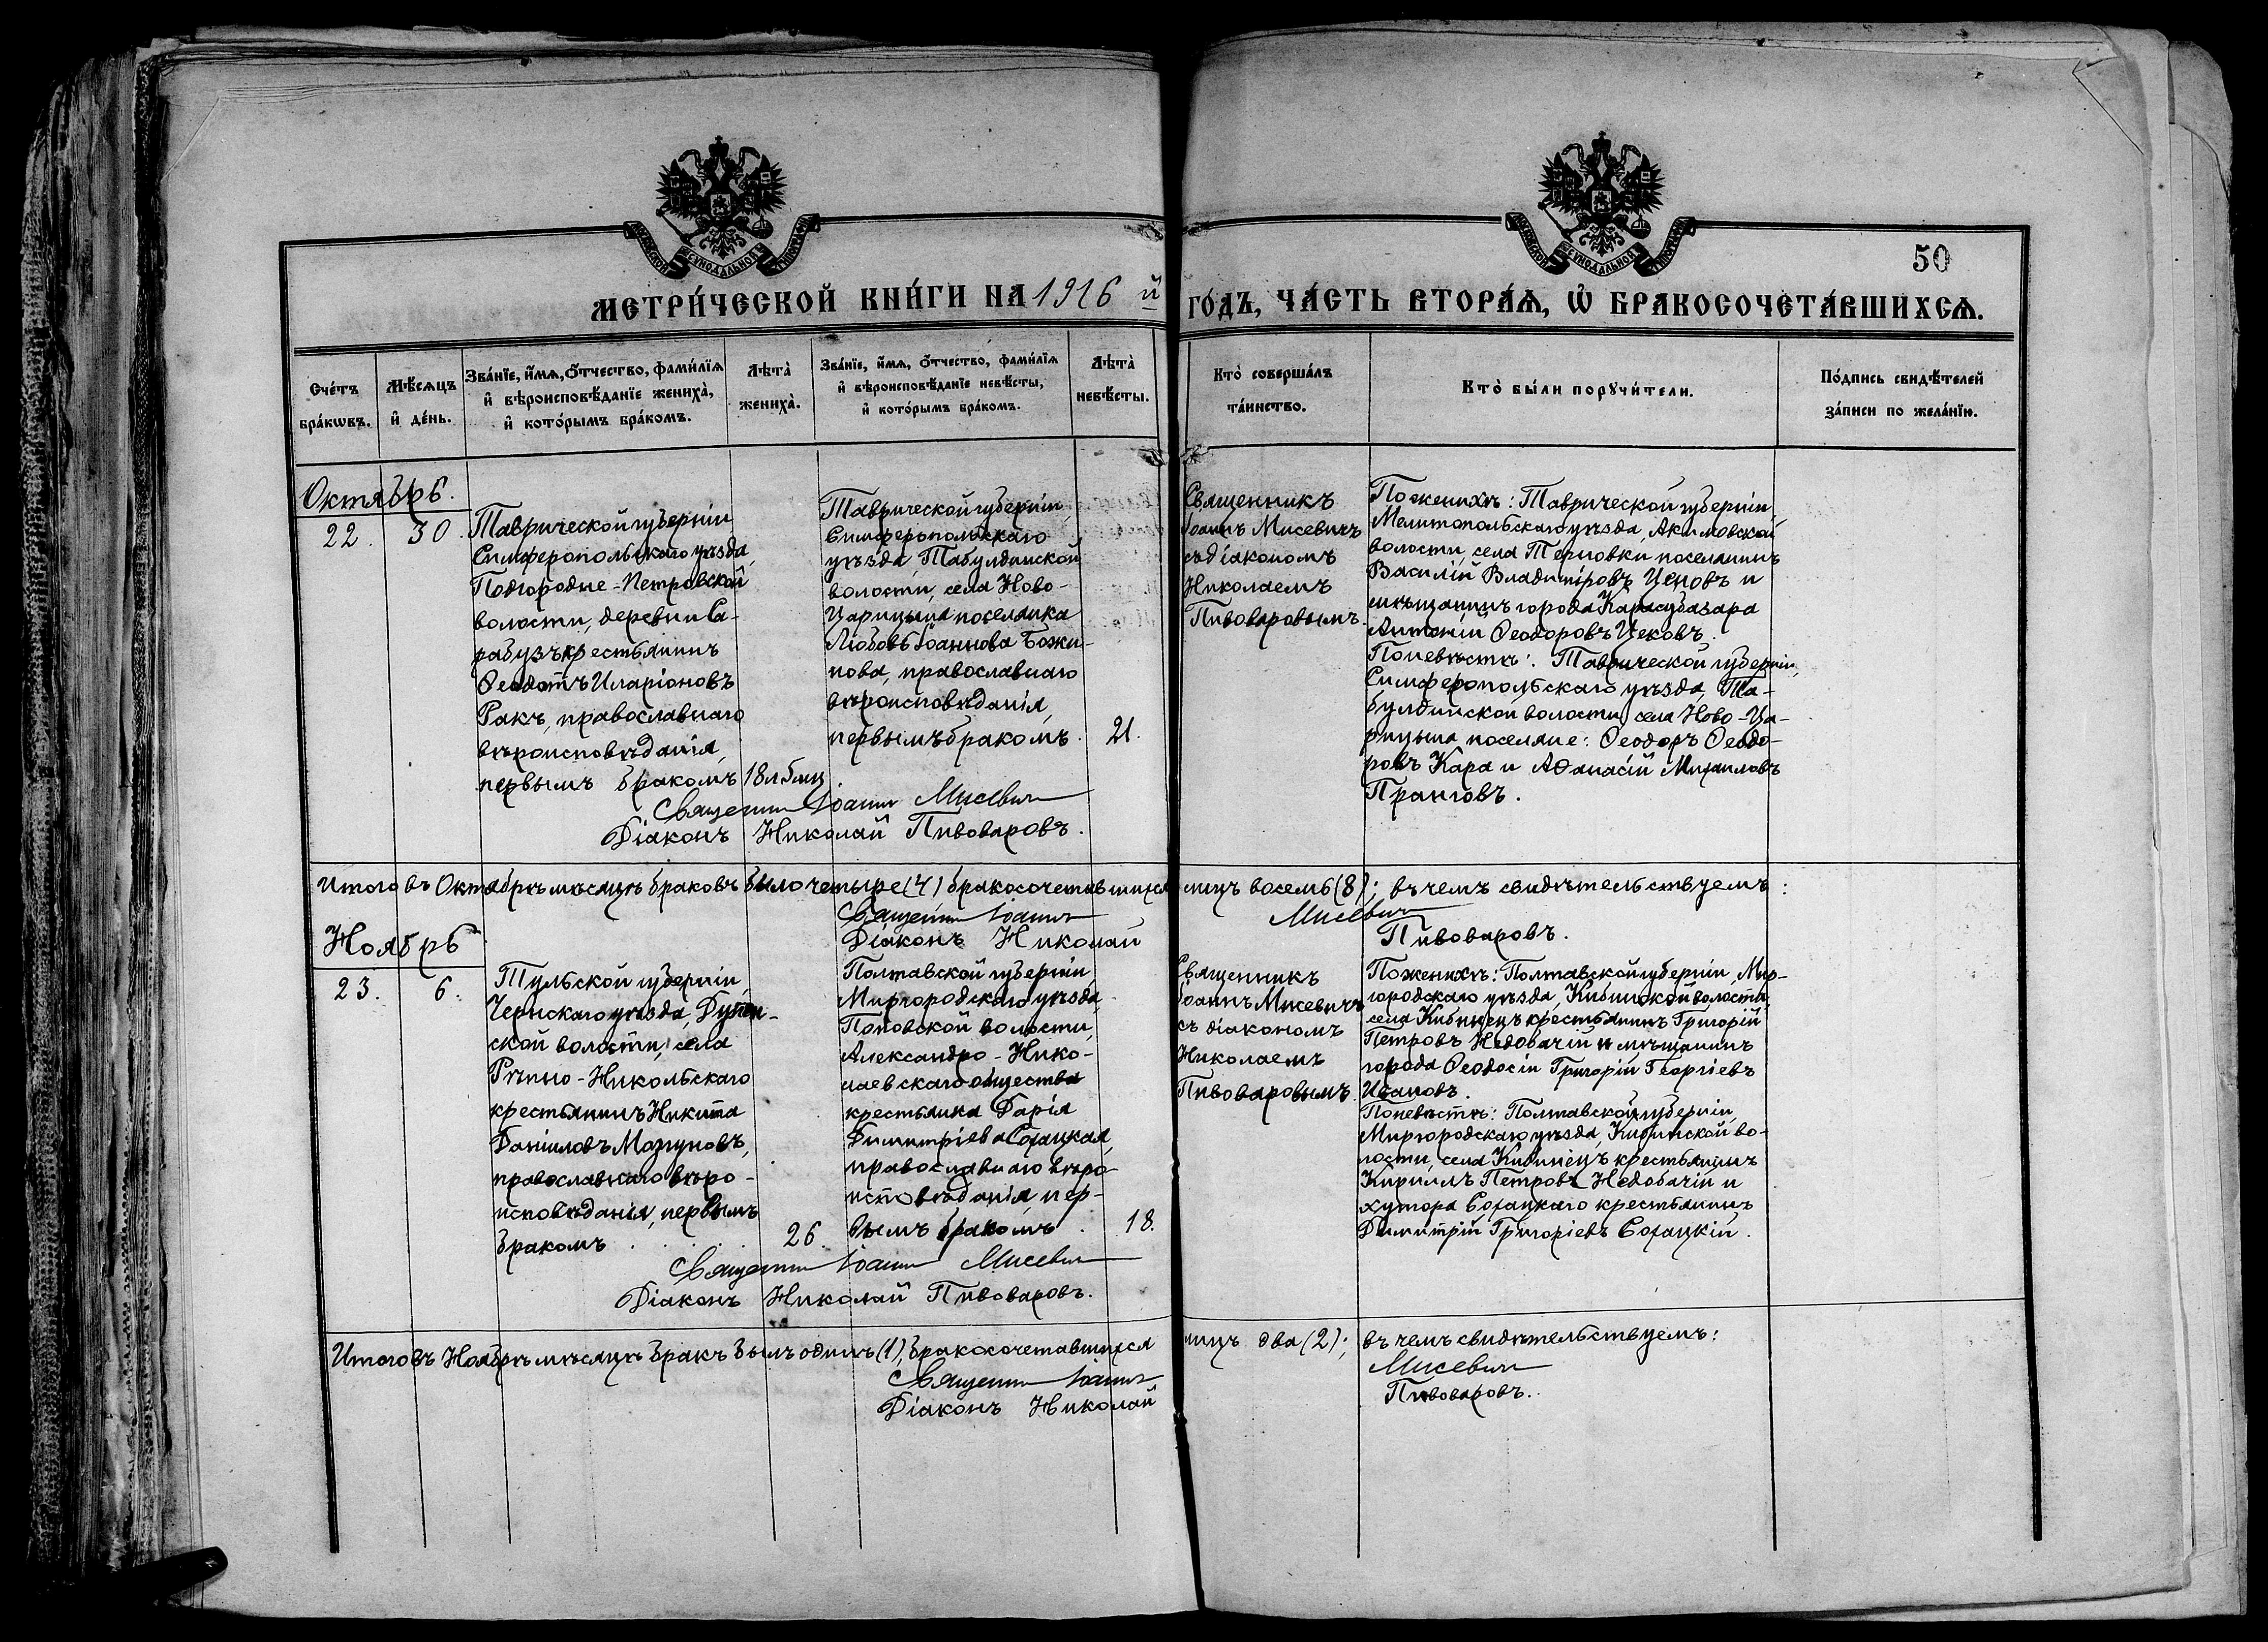 МОСКОВСКОЙ СѴНОДАЛЬНОЙ ТИПОГРАФІИ
МОСКОВСКОЙ СѴНОДАЛЬНОЙ ТИПОГРАФІИ
50
МЕТРИ́ЧЕСКОЙ КНИ́ГИ НА 1916 й
ГО́ДЪ, ЧА́СТЬ ВТОРА́Ѧ, Ѽ БРАКОСОЧЕТА́ВШИХСѦ.
Сче́тъ бра́кѡвъ.
Мѣ́сѧцъ и҆ де́нь.
Зва́нїе, и҆́мѧ, ѻ҆́тчество, фами́лїѧ
и҆ вѣроисповѣ́данїе жениха̀,
и҆ кото́рымъ бра́комъ.
Лѣта̀
жениха̀.
Зва́нїе, и҆́мѧ, ѻ҆́тчество, фами́лїѧ
и҆ вѣроисповѣ́данїе невѣ́сты,
и҆ кото́рымъ бра́комъ.
Лѣта̀
невѣ́сты.
Кто̀ соверша́лъ
та́инство.
Кто̀ бы́ли порꙋчи́тели.
По́дпись свидѣ́телей
за́писи по жела́нїю.
Октябрь.
22.
30.
Таврической губерніи
Симферопольскаго уѣзда,
Подгородне-Петровской
волости, деревни Са-
рабузъ крестьянинъ
Ѳеодотъ Иларіоновъ
Ракъ, православнаго
вѣроисповѣданія,
первымъ бракомъ
Таврической губерніи,
Симферопольскаго
уѣзда, Табулдинской
волости, села Ново-
Царицына поселянка
Любовь Іоаннова Божи-
нова, православнаго
вѣроисповѣданія,
первымъ бракомъ.
21.
Священникъ
Іоаннъ Мисевичъ
съ діакономъ
Николаемъ
Пивоваровымъ.
По женихѣ: Таврической губерніи,
Мелитопольскаго уѣзда, Акимовской
волости, села Терновки поселянинъ
Василій Владиміровъ Ценовъ и
мѣщанинъ города Карасубазара
Антоній Ѳеодоровъ Цековъ.
По невѣстѣ: Таврической губерніи,
Симферопольскаго уѣзда, Та-
булдинской волости, села Ново-Ца-
рицына поселяне: Ѳеодоръ Ѳеодо-
ровъ Кара и Аѳанасій Михаиловъ
Пранговъ.
Священникъ Іоаннъ Мисевичъ
Діаконъ Николай Пивоваровъ.
Итого въ Октябрѣ мѣсяцѣ браковъ было четыре (4) бракосочетавшихся лицъ восемь (8); въ чемъ свидѣтельствуемъ:
Священникъ Іоаннъ Мисевичъ
Діаконъ Николай Пивоваровъ.
Ноябрь
23.
6.
Тульской губерніи,
Чернскаго уѣзда,
ской волости, села
Рѣпно-Никольскаго
крестьянинъ Никита
Даніиловъ Мазуновъ,
православнаго вѣро-
исповѣданія, первымъ
бракомъ
26.
Полтавской губерніи
Миргородскаго уѣзда,
Поповской волости,
Александро-Нико-
лаевскаго общества
крестьянка Дарія
Димитріева Сохацкая,
православнаго вѣро-
исповѣданія, пер-
вымъ бракомъ.
18.
Священникъ
Іоаннъ Мисевичъ
съ діакономъ
Николаемъ
Пивоваровымъ.
По женихѣ: Полтавской губерніи, Мир-
городскаго уѣзда, Кибинской волости,
села Кибинецъ крестьянинъ Григорій
Петровъ Недобачій и мѣщанинъ
города Ѳеодосіи Григорій Георгіевъ
Ивановъ.
По невѣстѣ: Полтавской губерніи,
Миргородскаго уѣзда, Кибинской во-
лости, села Кибинецъ крестьянинъ
Кириллъ Петровъ Недобачій и
хутора Сохацкаго крестьянинъ
Димитрій Григоріевъ Сохацкій.
Священникъ Іоаннъ Мисевичъ
Діаконъ Николай Пивоваровъ.
Итого въ Ноябрѣ мѣсяцѣ бракъ былъ одинъ (1), бракосочетавшихся лицъ два (2); въ чемъ свидѣтельствуемъ:
Священникъ Іоаннъ Мисевичъ
Діаконъ Николай Пивоваровъ.